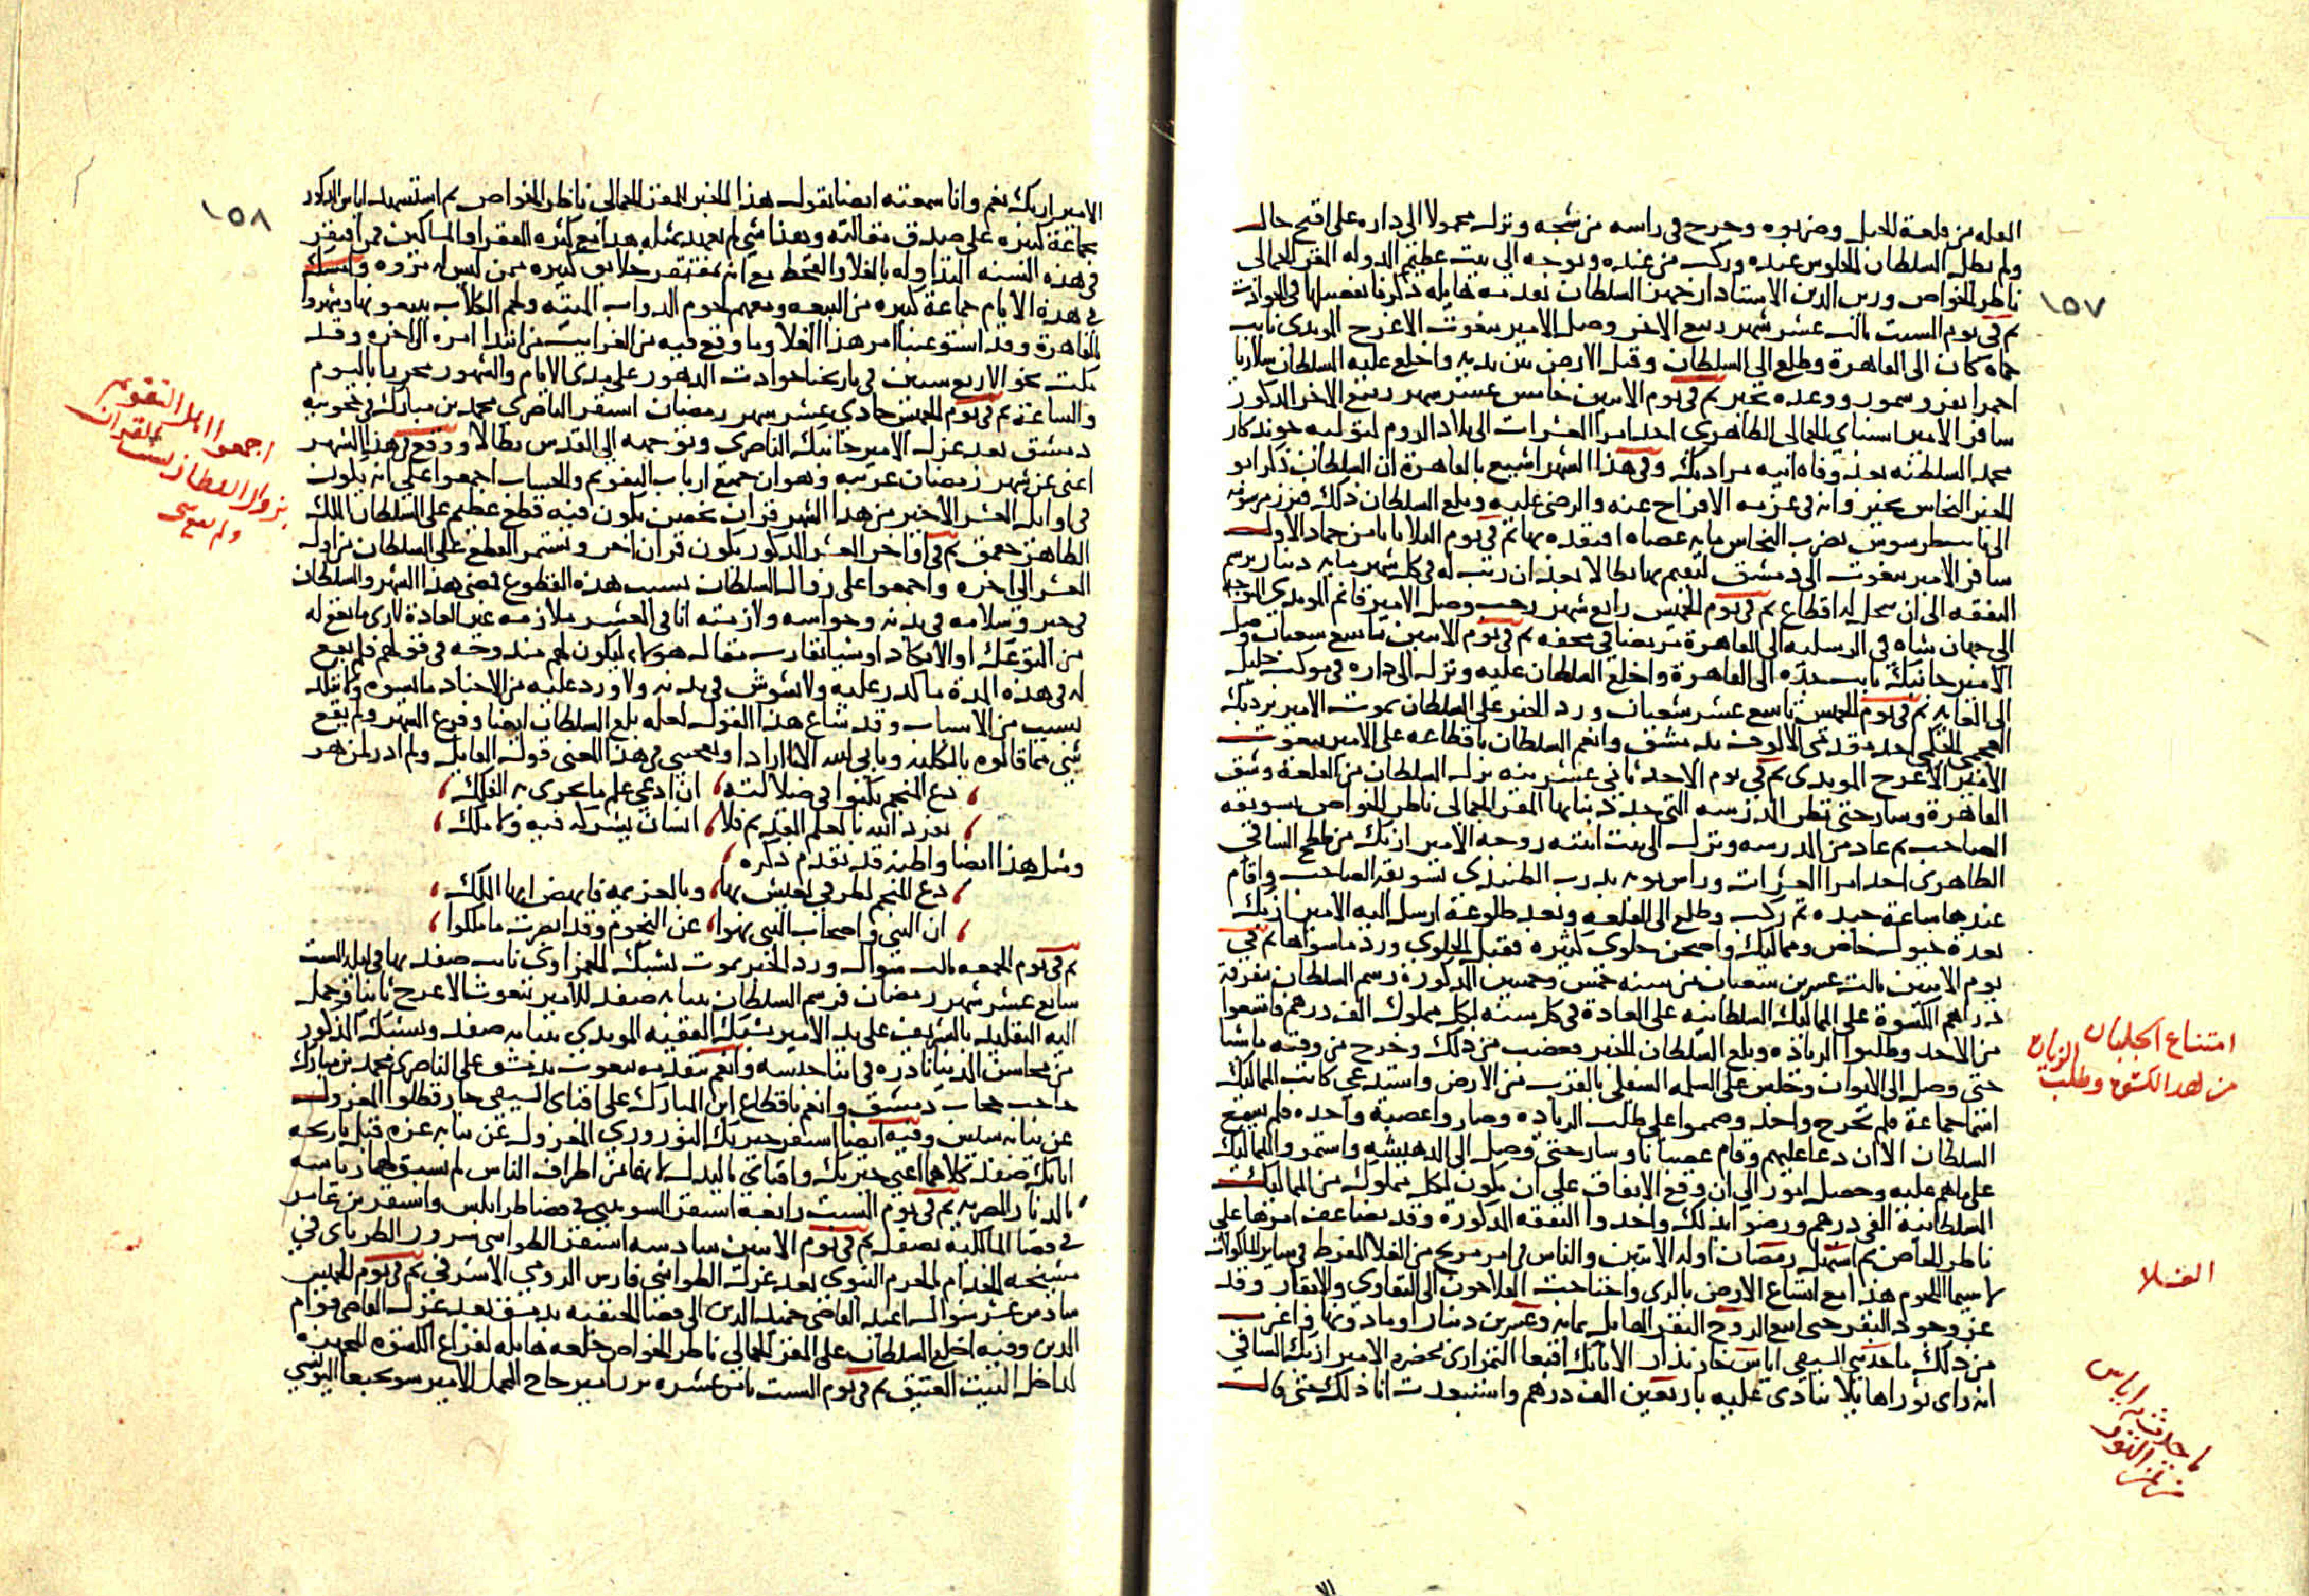 ١٥٧
القلعه من قلعة الجبل وضربوه وجرح في راسه من شجه ونزل محمولا الى داره على اقبح حال
ولم يطل السلطان الجلوس عنده وركب من عنده وتوجه الى بيت عظيم الدوله المقر الجمالى
ناظر الخواص وزين الدين الاستادار فجهز السلطان تقدمه هايله ذكرنا تفصيلها في الحوادث
ثم في يوم السبت ثالث عشر شهر ربيع الاخر وصل الامير يبغوت الاعرج المويدى نايب
حماه كان الى القاهرة وطلع الى السلطان وقبل الارض بين يديه واخلع عليه السلطان سلاريا
احمرا بفرو سمور ووعده بخير ثم في يوم الاثنين خامس عشر شهر ربيع الاخر المذكور
سافر الامير اسنباى الجمالى الظاهرى احد امرا العشرات الى بلاد الروم لتوليه خوندكار
محمد السلطنه بعد وفاه ابيه مراد بك وفي هذا الشهر اشيع بالقاهرة ان السلطان ذكر ابو
الخير النحاس بخير وانه في عزمه الافراج عنه والرضى عليه وبلغ السلطان ذلك فبرز مرسومه
الى نايب طرسوس بضرب النحاس مايه عصاه افتقده بها ثم في يوم الثلاثا ثامن جماد الاول
سافر الامير يبغوت الى دمشق ليقيم بها بطالا بعد ان رتب له في كل شهر مايه دينار برسم
النفقه الى ان ينحل له اقطاع ثم في يوم الخميس رابع شهر رجب وصل الامير قانم المويدى المتوجه
الى جهان شاه في الرسليه الى القاهرة مريضا في محفه ثم في يوم الاثنين تاسع شعبان وصل
الامير جانبك نايب جده الى القاهرة واخلع السلطان عليه ونزل الى داره في موكب جليل
الى الغايه ثم في يوم الخميس تاسع عشر شعبان ورد الخبر على السلطان بموت الامير بردبك
العجمى الجكمى احد مقدمى الالوف بدمشق وانعم السلطان باقطاعه على الامير يبغوت
الامير الاعرج المويدى ثم في يوم الاحد ثانى عشرينه نزل السلطان من القلعة وشق
القاهرة وسار حتى نظر المدرسه التى جدد بناها المقر الجمالى ناظر الخواص بسويقه
الصاحب ثم عاد من المدرسه ونزل الى بيت ابنته زوجه الامير ازبك من ططخ الساقي
الظاهرى احد امرا العشرات وراس نوبه بدرب الطنبذى بسويقة الصاحب واقام
عندها ساعة جيده ثم ركب وطلع الى القلعه وبعد طلوعه ارسل اليه الامير ازبك
بعدة خيول خاص ومماليك واصحن حلوى كثيره فقبل الحلوى ورد ما سواها ثم في
يوم الاثنين ثالث عشرين شعبان من سنه خمس وخمسين المذكورة رسم السلطان بتفرقة
دراهم الكسوة على المماليك السلطانيه على العادة في كل سنه لكل مملوك الف درهم فامتنعوا
من الاخد وطلبوا الزياده وبلغ السلطان الخبر فغضب من ذلك وخرج من وقته ماشيا
حتى وصل الى الايوان وجلس على السلمه السفلى بالقرب من الارض واستدعى كاتب المماليك
اسما جماعة فلم يخرج واحد وصمموا على طلب الزياده وصاروا عصبة واحده فلم يسع
السلطان الا ان دعا عليهم وقام غضبانا وسار حتى وصل الى الدهيشه واستمر والمماليك
على ما هم عليه وحصل امور الى ان وقع الاتفاق على ان يكون لكل مملوك من المماليك
السلطانيه الفى درهم ورضوا بذلك واخدوا النفقه المذكورة وقد تضاعف امرها على
ناظر الخاص ثم استهل رمضان اوله الاثنين والناس في امر مريج من الغلا المفرط في ساير الماكولات
لا سيما اللحوم هذا مع اتساع الارض بالرى واحتاجت الفلاحون الى التقاوى والابقار وقد
عز وجود البقر حتى ابيع الزوج البقر الهايل بمايه وعشرين دينار او ما دونها واغرب
من ذلك ما حدثني السيفى اياس خازندار الاتابك اقبغا التمرازى بحضرة الامير ازبك الساقي
انه راى ثورا هايلا ينادى عليه باربعين الف درهم واستبعدت انا ذلك حتى قال
امتناع الجلبان
من اخد الكسوة وطلب الزياده
الغلا
ما حدث به اياس
من ثمن الثور
١٥٨
الامير ازبك نعم وانا سمعته ايضا يقول هذا الخبر للمقر الجمالى ناظر الخواص ثم استشهد اياس المذكور
بجماعة كثيره على صدق مقالته وهذا شي لم نعهد بمثله هذا مع كثره الفقرا والمساكين ممن افتقر
في هذه السنه المتداوله بالغلا والقحط مع انه افتقر خلايق كثيره ممن ليس له مروه وامسك
في هذه الايام جماعة كثيره من البيعه ومعهم لحوم الدواب الميته ولحم الكلاب يبيعونها وشهروا
بالقاهرة وقد استوعبنا امر هذا الغلا وما وقع فيه من الغرايب من ابتدا امره الى اخره وقد
مكث نحو الاربع سنين في تاريخنا حوادث الدهور على مدى الايام والشهور محررا باليوم
والساعة ثم في يوم الخميس حادى عشر شهر رمضان استقر الناصرى محمد بن مبارك في حجوبيه
دمشق بعد عزل الامير جانبك الناصرى وتوجهه الى القدس بطالا ووقع في هذا الشهر
اعنى عن شهر رمضان غريبه وهو ان جميع ارباب التقويم والحساب اجمعوا على انه يكون
في اوايل العشر الاخير من هذا الشهر قران نحسين يكون فيه قطع عظيم على السلطان الملك
الظاهر جقمق ثم في اواخر العشر المذكور يكون قران اخر ويستمر القطع على السلطان من اول
العشر الى اخره واجمعوا على زوال السلطان بسبب هذه القطوع فمضى هذا الشهر والسلطان
في خير وسلامه في بدنه وحواسه ولازمته انا في العشر ملازمه غير العادة لارى ما يقع له
من التوعك او الانكاد او شيا يقارب مقاله هولاء ليكون لهم مندوحه في قولهم فلم يقع
له في هذه المدة ما كدر عليه ولا تشوش في بدنه ولا ورد عليه من الاخبار ما يسوه ولا نكد
بسبب من الاسباب وقد شاع هذا القول لعله بلغ السلطان ايضا وفرغ الشهر ولم يقع
شي مما قالوه بالكليه ويابى الله الا ما اراد ويعجبنى في هذا المعنى قول القايل ولم ادر لمن هو
دع المنجم يكبوا في ضلالته ان ادعى علم ما يجرى به الفلك
تفرد الله بالعلم القديم فلا انسان يشركه فيه ولا ملك
ومثل هذا ايضا واظنه قد تقدم ذكره
دع النجوم لطرقي يعيش بها وبالعزيمه فانهض ايها الملك
ان النبى واصحاب النبى نهوا عن النجوم وقد ابصرت ما ملكوا
ثم في يوم الجمعه ثالث شوال ورد الخبر بموت يشبك الحمزاوى نايب صفد بها في ليله السبت
سابع عشر شهر رمضان فرسم السلطان بنيابه صفد للامير يبغوت الاعرج ثانيا وحمل
اليه التقليد بالتشريف على يد الامير يشبك الفقيه المويدى بنيابه صفد ويشبك المذكور
من محاسن الدنيا نادره في ابنا جنسه وانعم بتقدمه يبغوت بدمشق على الناصرى محمد بن مبارك
حاجب حجاب دمشق وانعم باقطاع ابن المبارك على اقباى السيفى جارقطلوا المعزول
عن نيابه سيس وفيه ايضا استقر خيربك النوروزى المعزول عن نيابه غزه قبل تاريخه
اتابك صفد كلاهما اعنى خيربك واقباى بالبذل لانهما من اطراف الناس لم يسبق لهما رياسه
بالديار المصريه ثم في يوم السبت رابعه استقر السوبينى في قضا طرابلس واستقر بن عامر
في قضا المالكيه بصفد ثم في يوم الاثنين سادسه استقر الطواشى سرور الطرباى في
مشيخه الخدام بالحرم النبوى بعد عزل الطواشى فارس الرومى الاشرفى ثم في يوم الخميس
سادس عشر شوال اعيد القاضى حميد الدين الى قضا الحنفيه بدمشق بعد عزل القاضى قوام
الدين وفيه اخلع السلطان على المقر الجمالى ناظر الخواص خلعه هايله لفراغ الكسوه المجهزه
لداخل البيت العتيق ثم في يوم السبت ثامن عشره برز امير حاج المحمل الامير سونجبغا اليونسى
اجمعوا اهل التقويم
بزوال السلطان بسبب القران
ولم يقع شي